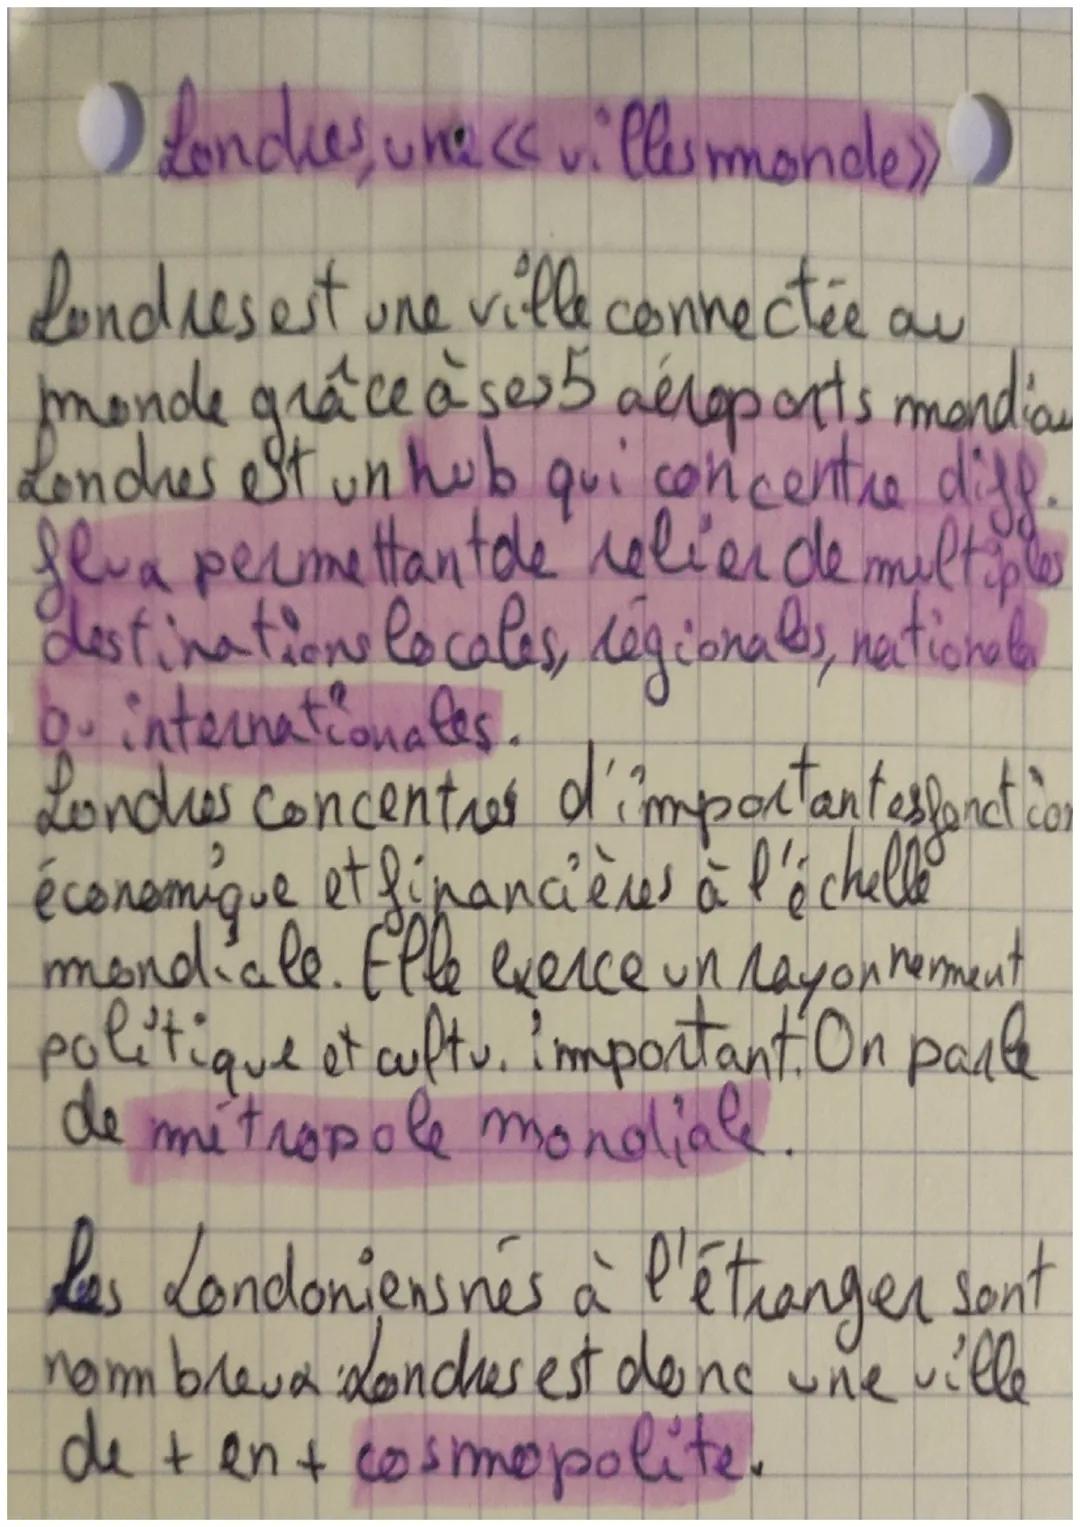 Londres, une << villes monde >>
Londres est une ville connectée au
monde grâce à ses 5 aéroports mondiau
Londres est un hub qui concentre diff.
flux permettant de relier de multiples
destinations locales, régionales, nationales
ou internationales.
Londres concentres d'importantes fonction
économique et financières à l'échelle
mondiale. Elle exerce un rayonnement
politique et cultu. important. On parle
de métropole mondiale.
Les Londoniens nés à l'étranger sont
nombreux : Londres est donc une ville
de + en + cosmopolite.